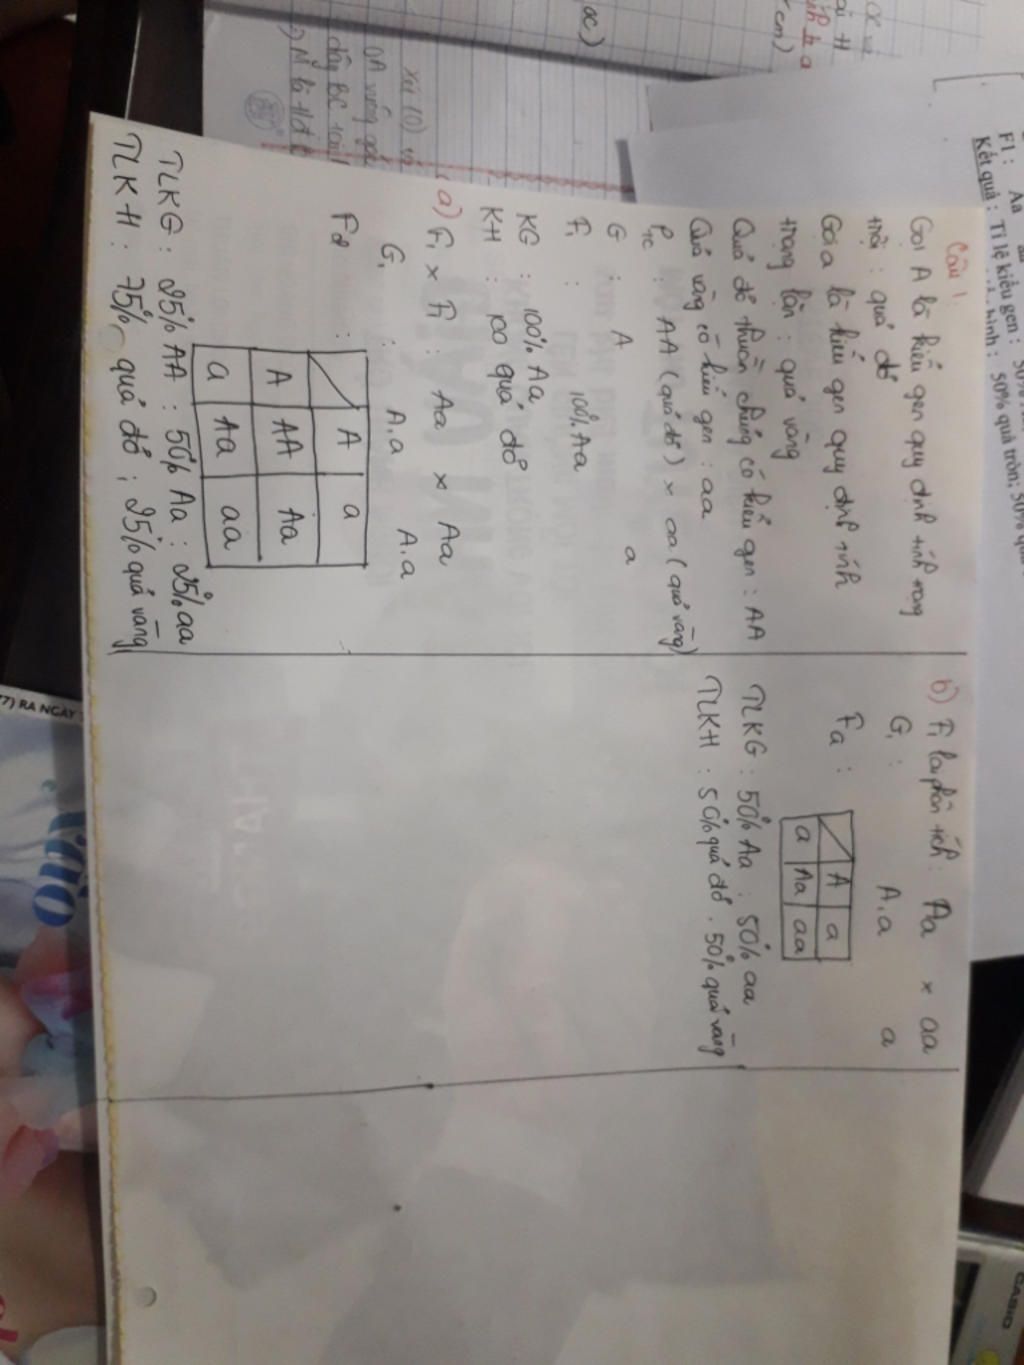 Câu 1:
Gọi A là kiểu gen quy định tính trạng
trội : quả đỏ
Gọi a là kiểu gen quy định tính
trạng lặn : quả vàng
Quả đỏ thuần chủng có kiểu gen : AA
Quả vàng có kiểu gen : aa
Ptc : AA (quả đỏ) × aa (quả vàng)
G : A a
F1 : 100% Aa
KG : 100% Aa
KH : 100 quả đỏ
a) F1 × F1 : Aa × Aa
G1 : A,a A,a
F2 :
A a
A AA Aa
a Aa aa
TLKG : 25% AA : 50% Aa : 25% aa
TLKH : 75% quả đỏ ; 25% quả vàng
b) F1 lai phân tích : Aa × aa
G1 : A,a a
Fa :
A a
a Aa aa
TLKG : 50% Aa : 50% aa
TLKH : 50% quả đỏ . 50% quả vàng
F1 : Aa
Kết quả : Tỉ lệ kiểu gen : 50%
hình : 50% quả tròn; 50% quả
xét (O)
OA vuông góc
dây BC tại
M là
RA NGÀY
CASIO